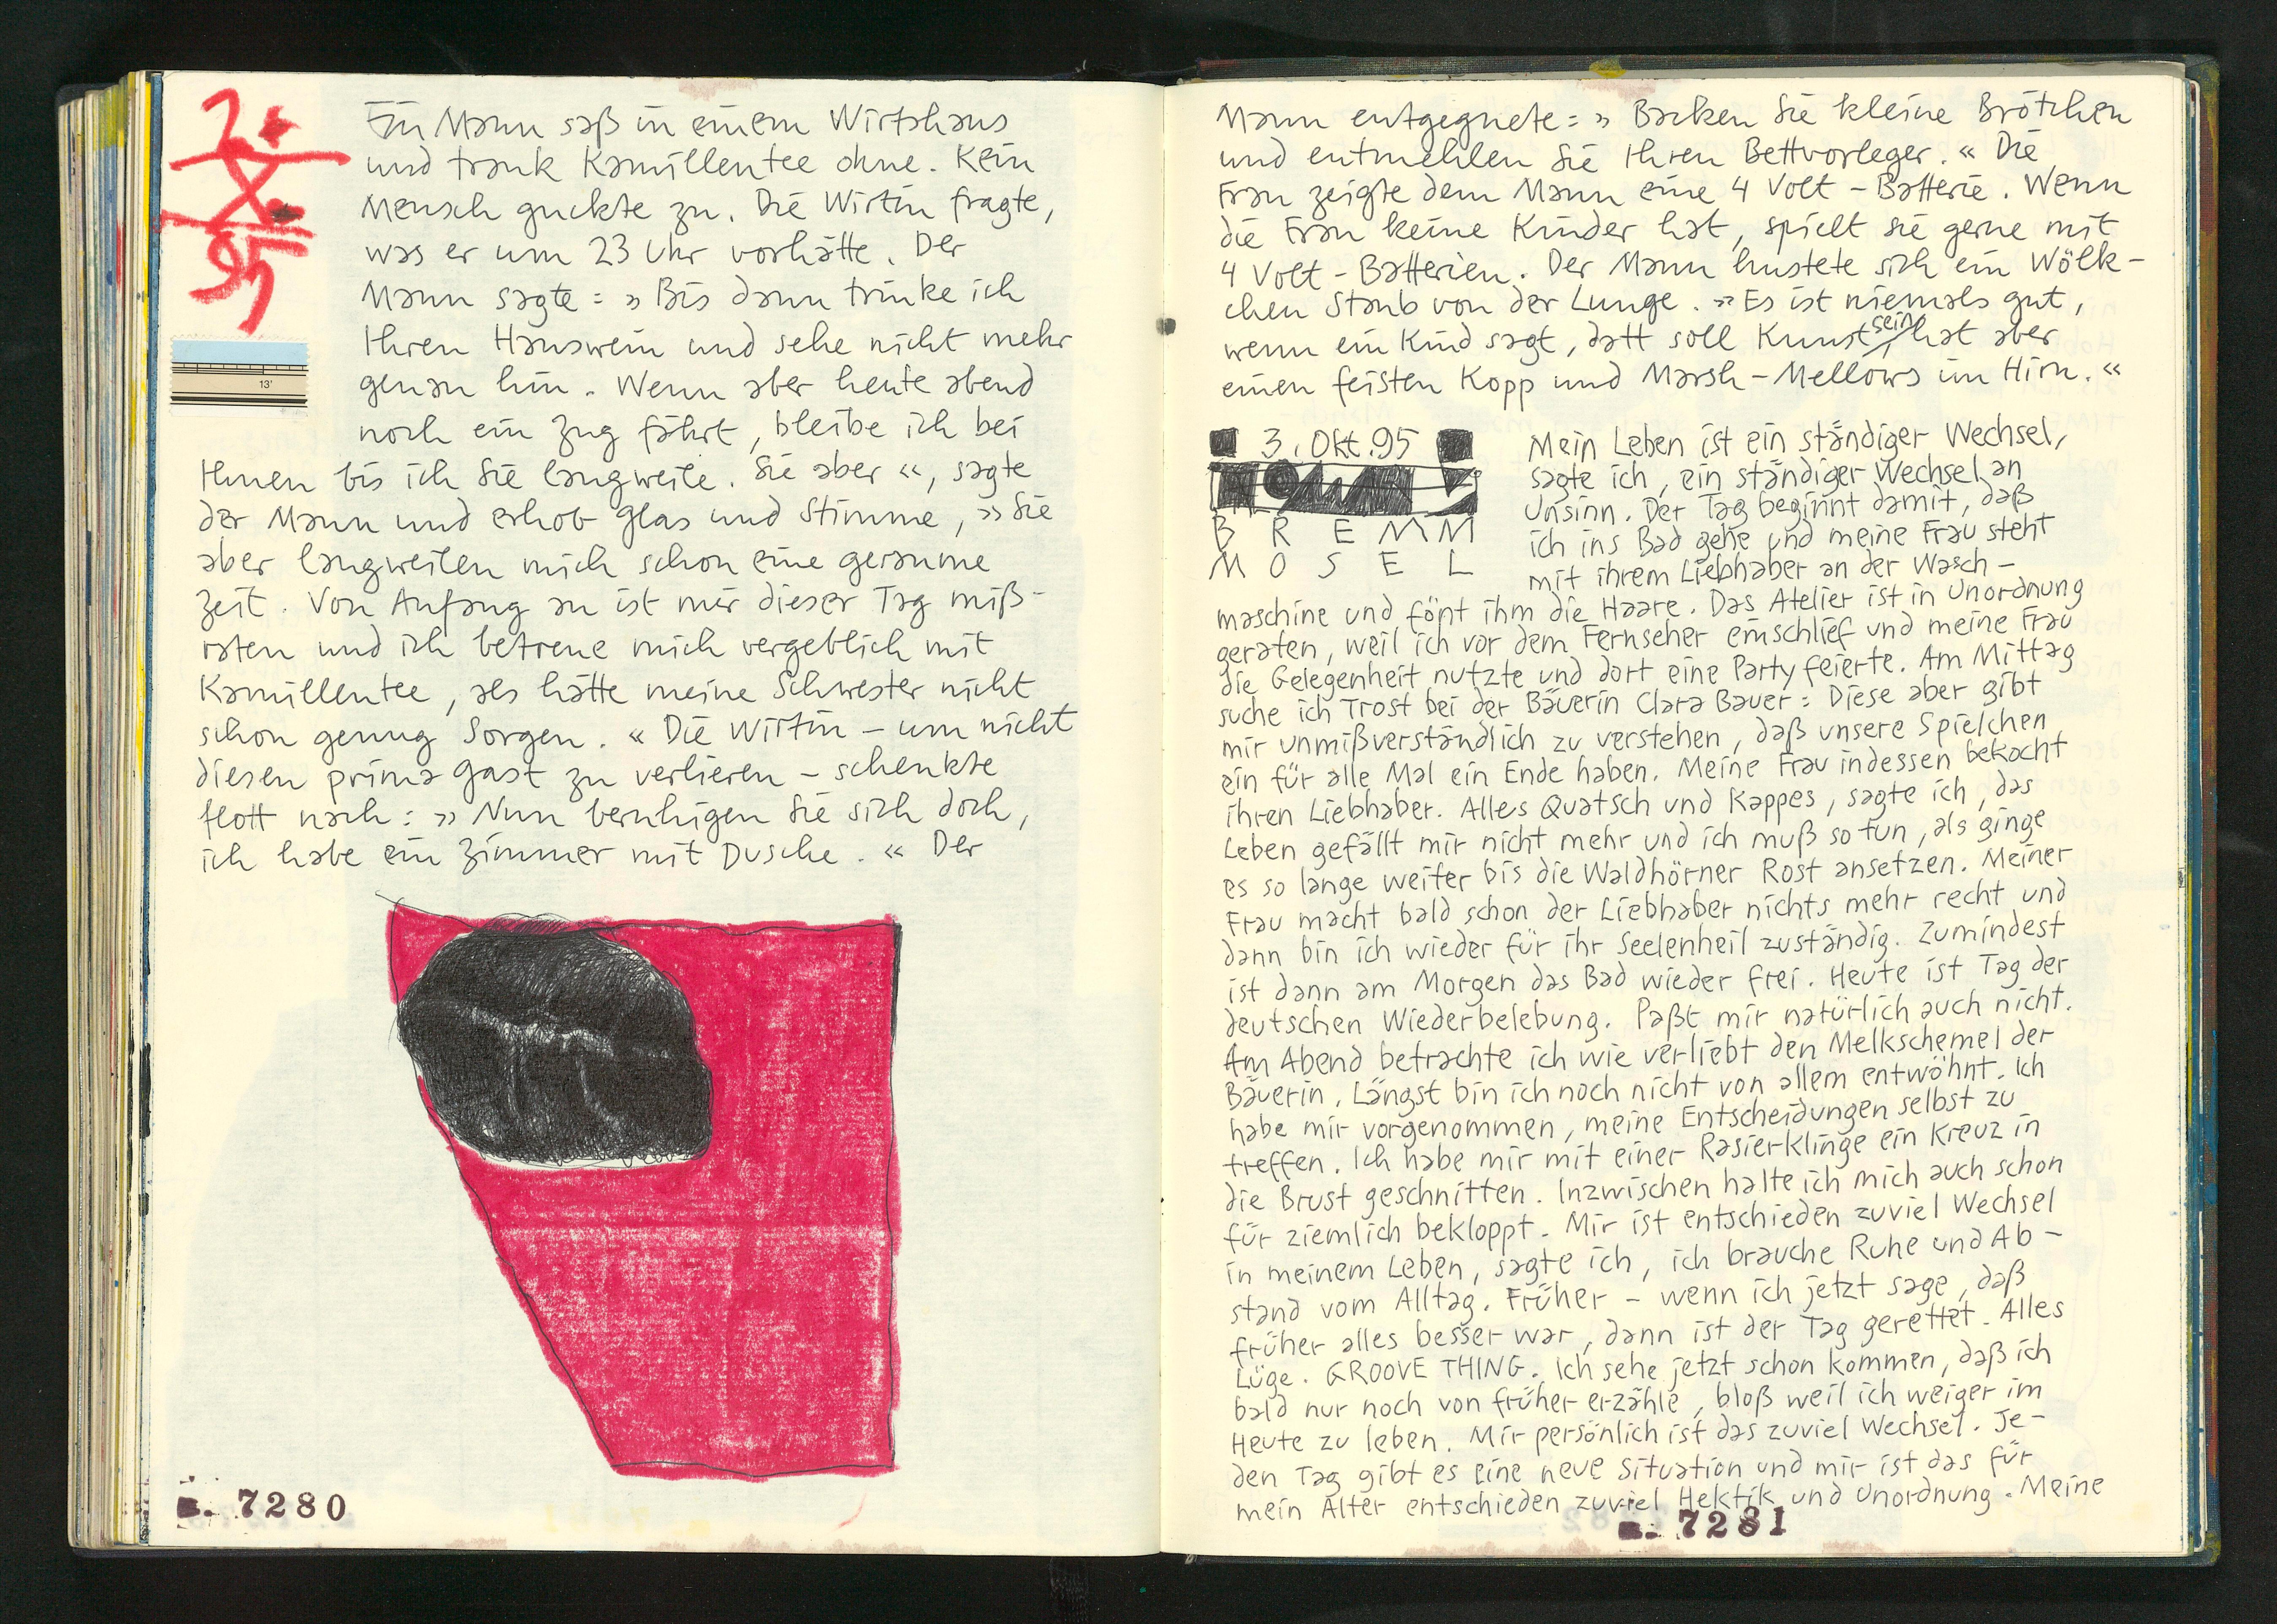 2. X. 95
Ein Mann saß in einem Wirtshaus
und trank Kamillentee ohne. Kein
Mensch guckte zu. Die Wirtin fragte,
was er um 23 Uhr vorhätte. Der
Mann sagte: » Bis dann trinke ich
Ihren Hauswein und sehe nicht mehr
genau hin. Wenn aber heute abend
noch ein Zug fährt, bleibe ich bei
Ihnen bis ich Sie langweile. Sie aber «, sagte
der Mann und erhob Glas und Stimme, » Sie
aber langweilen mich schon eine geraume
Zeit. Von Anfang an ist mir dieser Tag miß-
raten und ich betreue mich vergeblich mit
Kamillentee, als hätte meine Schwester nicht
schon genug Sorgen. « Die Wirtin – um nicht
diesen prima Gast zu verlieren – schenkte
flott nach: » Nun beruhigen Sie sich doch,
ich habe ein Zimmer mit Dusche. « Der
13'
7280
Mann entgegnete: » Backen Sie kleine Brötchen
und entmehlen Sie Ihren Bettvorleger. « Die
Frau zeigte dem Mann eine 4 Volt - Batterie. Wenn
die Frau keine Kinder hat, spielt sie gerne mit
4 Volt - Batterien. Der Mann hustete sich ein Wölk-
chen Staub von der Lunge. » Es ist niemals gut,
wenn ein Kind sagt, datt soll Kunst sein, hat aber
einen feisten Kopp und Marsh-Mellows im Hirn. «
3. Okt. 95
BREMM
MOSEL
Mein Leben ist ein ständiger Wechsel,
sagte ich, ein ständiger Wechsel an
Unsinn. Der Tag beginnt damit, daß
ich ins Bad gehe und meine Frau steht
mit ihrem Liebhaber an der Wasch-
maschine und fönt ihm die Haare. Das Atelier ist in Unordnung
geraten, weil ich vor dem Fernseher einschlief und meine Frau
die Gelegenheit nutzte und dort eine Party feierte. Am Mittag
suche ich Trost bei der Bäuerin Clara Bauer: Diese aber gibt
mir unmißverständlich zu verstehen, daß unsere Spielchen
ein für alle Mal ein Ende haben. Meine Frau indessen bekocht
ihren Liebhaber. Alles Quatsch und Kappes, sagte ich, das
Leben gefällt mir nicht mehr und ich muß so tun, als ginge
es so lange weiter bis die Waldhörner Rost ansetzen. Meiner
Frau macht bald schon der Liebhaber nichts mehr recht und
dann bin ich wieder für ihr Seelenheil zuständig. Zumindest
ist dann am Morgen das Bad wieder frei. Heute ist Tag der
deutschen Wiederbelebung. Paßt mir natürlich auch nicht.
Am Abend betrachte ich wie verliebt den Melkschemel der
Bäuerin. Längst bin ich noch nicht von allem entwöhnt. Ich
habe mir vorgenommen, meine Entscheidungen selbst zu
treffen. Ich habe mir mit einer Rasierklinge ein Kreuz in
die Brust geschnitten. Inzwischen halte ich mich auch schon
für ziemlich bekloppt. Mir ist entschieden zuviel Wechsel
in meinem Leben, sagte ich, ich brauche Ruhe und Ab-
stand vom Alltag. Früher – wenn ich jetzt sage, daß
früher alles besser war, dann ist der Tag gerettet. Alles
Lüge. GROOVE THING. Ich sehe jetzt schon kommen, daß ich
bald nur noch von früher erzähle, bloß weil ich weiger im
Heute zu leben. Mir persönlich ist das zuviel Wechsel. Je-
den Tag gibt es eine neue Situation und mir ist das für
mein Alter entschieden zuviel Hektik und Unordnung. Meine
7281